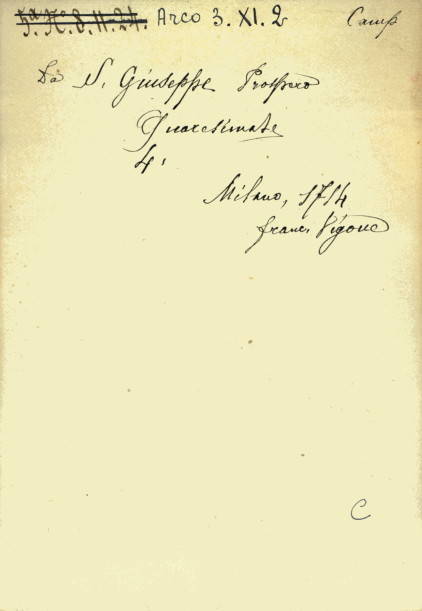 5ª N° 8. 11. 24. Arco 3. XI. 2 Camp
Da S. Giuseppe Prospero
Quaresimale
4'
Milano, 1714
franc. Vigone
C